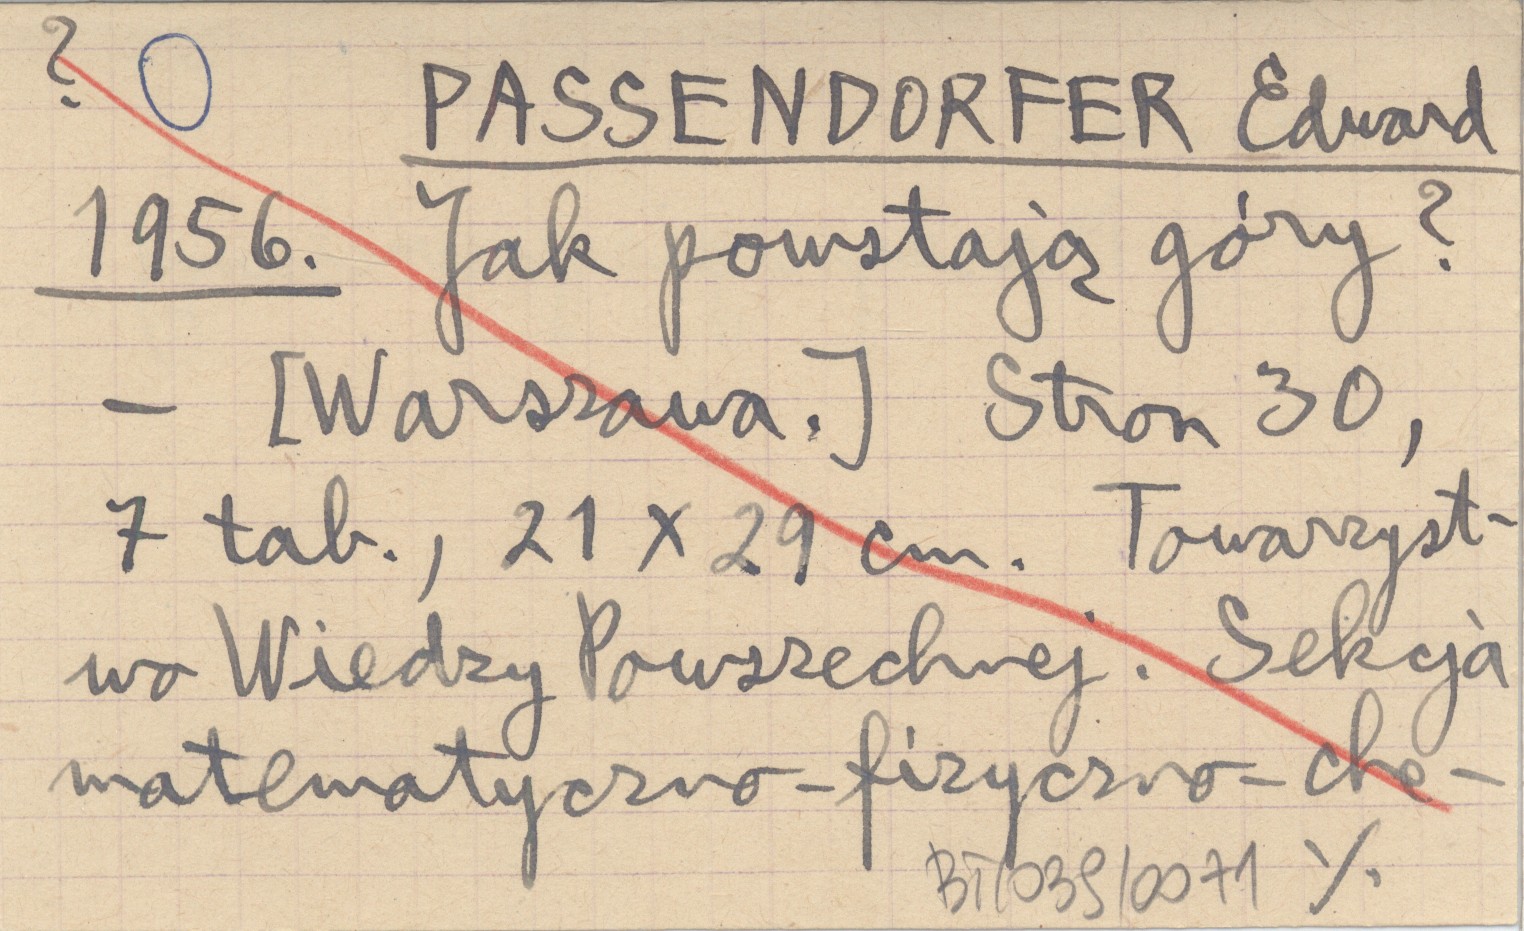 ? O PASSENDORFER Edward
1956. Jak powstają góry?
– [Warszawa.] Stron 30,
7 tab., 21 x 29 cm. Towarzyst-
wo Wiedzy Powszechnej. Sekcja
matematyczno-fizyczno-che-
BT/039/0071 ./.